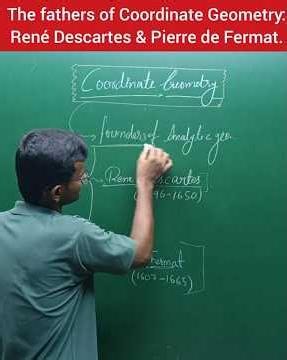 The fathers of Coordinate Geometry:
René Descartes & Pierre de Fermat.
Coordinate Geometry
founders of Analytic geo
Rene Descartes
96-1650)
Fermat
(1607-1665)